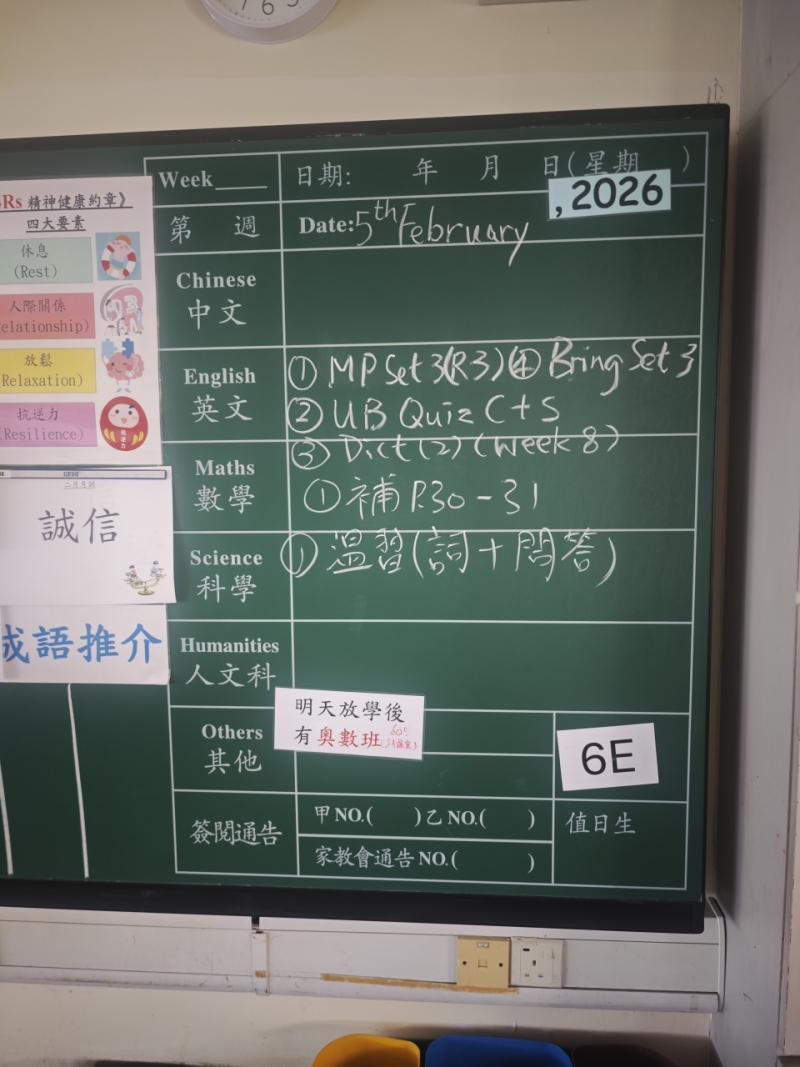 7 6 5
Rs 精神健康約章》
四大要素
休息
(Rest)
人際關係
elationship)
放鬆
Relaxation)
抗逆力
Resilience)
二月月訓
誠信
成語推介
Week____ 日期: 年 月 日(星期 )
第 週 Date:5th February ,2026
Chinese
中文
English
英文
① MP Set 3(R3) ④ Bring Set 3
② UB Quiz C+S
③ Dict (2) (Week 8)
Maths
數學
① 補 P.30-31
Science
科學
① 溫習(詞+問答)
Humanities
人文科
Others
其他
明天放學後
有奧數班
6E
簽閱通告
甲NO.( )乙NO.( )
家教會通告NO.( )
值日生